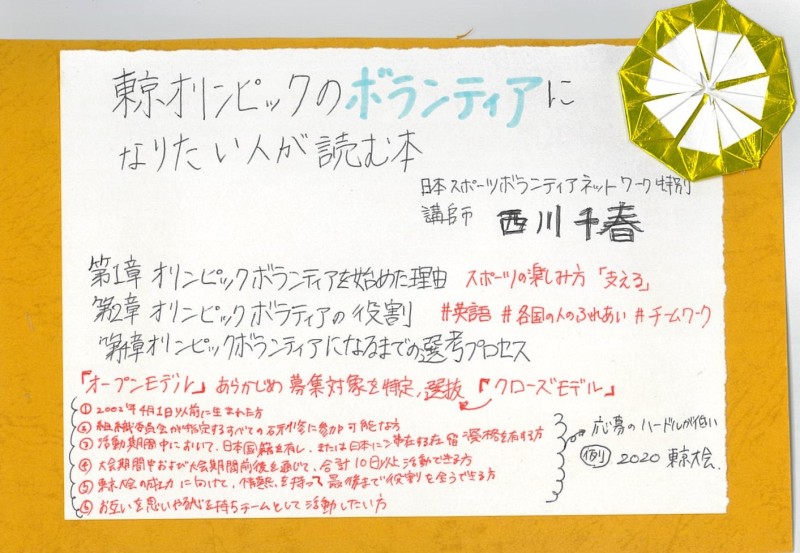 東京オリンピックのボランティアに
なりたい人が読む本
日本スポーツボランティアネットワーク特別
講師 西川千春
第1章 オリンピックボランティアを始めた理由 スポーツの楽しみ方「支える」
第2章 オリンピックボラティアの役割 #英語 #各国の人のふれあい #チームワーク
第4章オリンピックボランティアになるまでの選考プロセス
「オープンモデル」あらかじめ募集対象を特定,選抜「クローズモデル」
① 2002年4月1日以前に生まれた方
② 組織委員会が指定するすべての研修に参加可能な方
③ 活動期間中において、日本国籍を有し、または日本に滞在する在留資格を有する方
④ 大会期間中および大会期間前後を通じて、合計10日以上活動できる方
⑤ 東京大会の成功に向けて、情熱を持って最後まで役割を全うできる方
⑥ お互いを思いやる心を持ちチームとして活動したい方
応募のハードルが低い
例) 2020 東京大会.